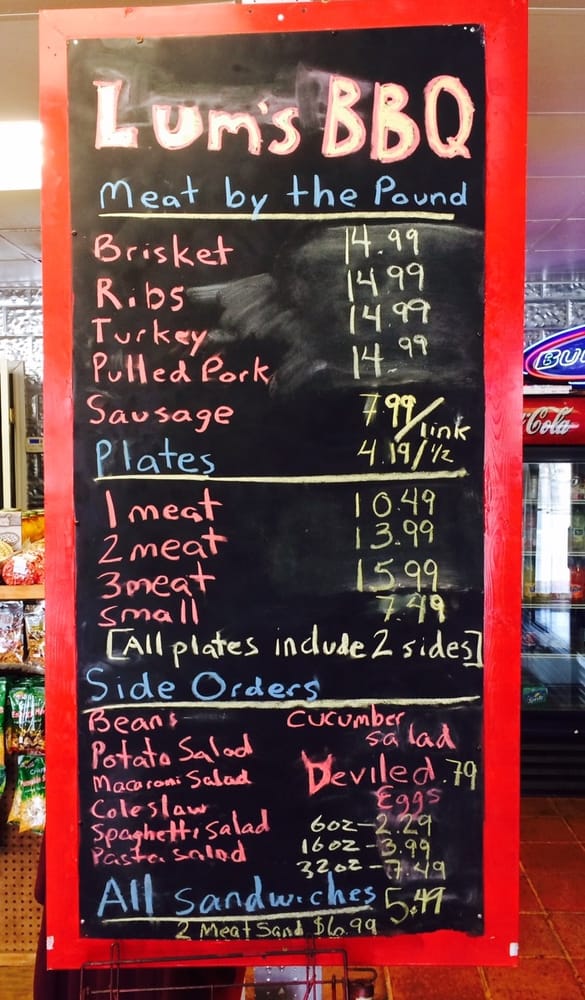 Lum's BBQ
Meat by the Pound
Brisket 14.99
Ribs 14.99
Turkey 14.99
Pulled Pork 14.99
Sausage 7.99/link
4.19/½
Plates
1 meat 10.49
2 meat 13.99
3 meat 15.99
small 7.49
[All plates include 2 sides]
Side Orders
Beans
Potato Salad
Macaroni Salad
Coleslaw
Spaghetti Salad
Pasta Salad
Cucumber
salad
Deviled .79
Eggs
6oz - 2.29
16oz - 3.99
32oz - 7.49
All Sandwiches 5.49
2 Meat Sand $6.99
BU
Cola